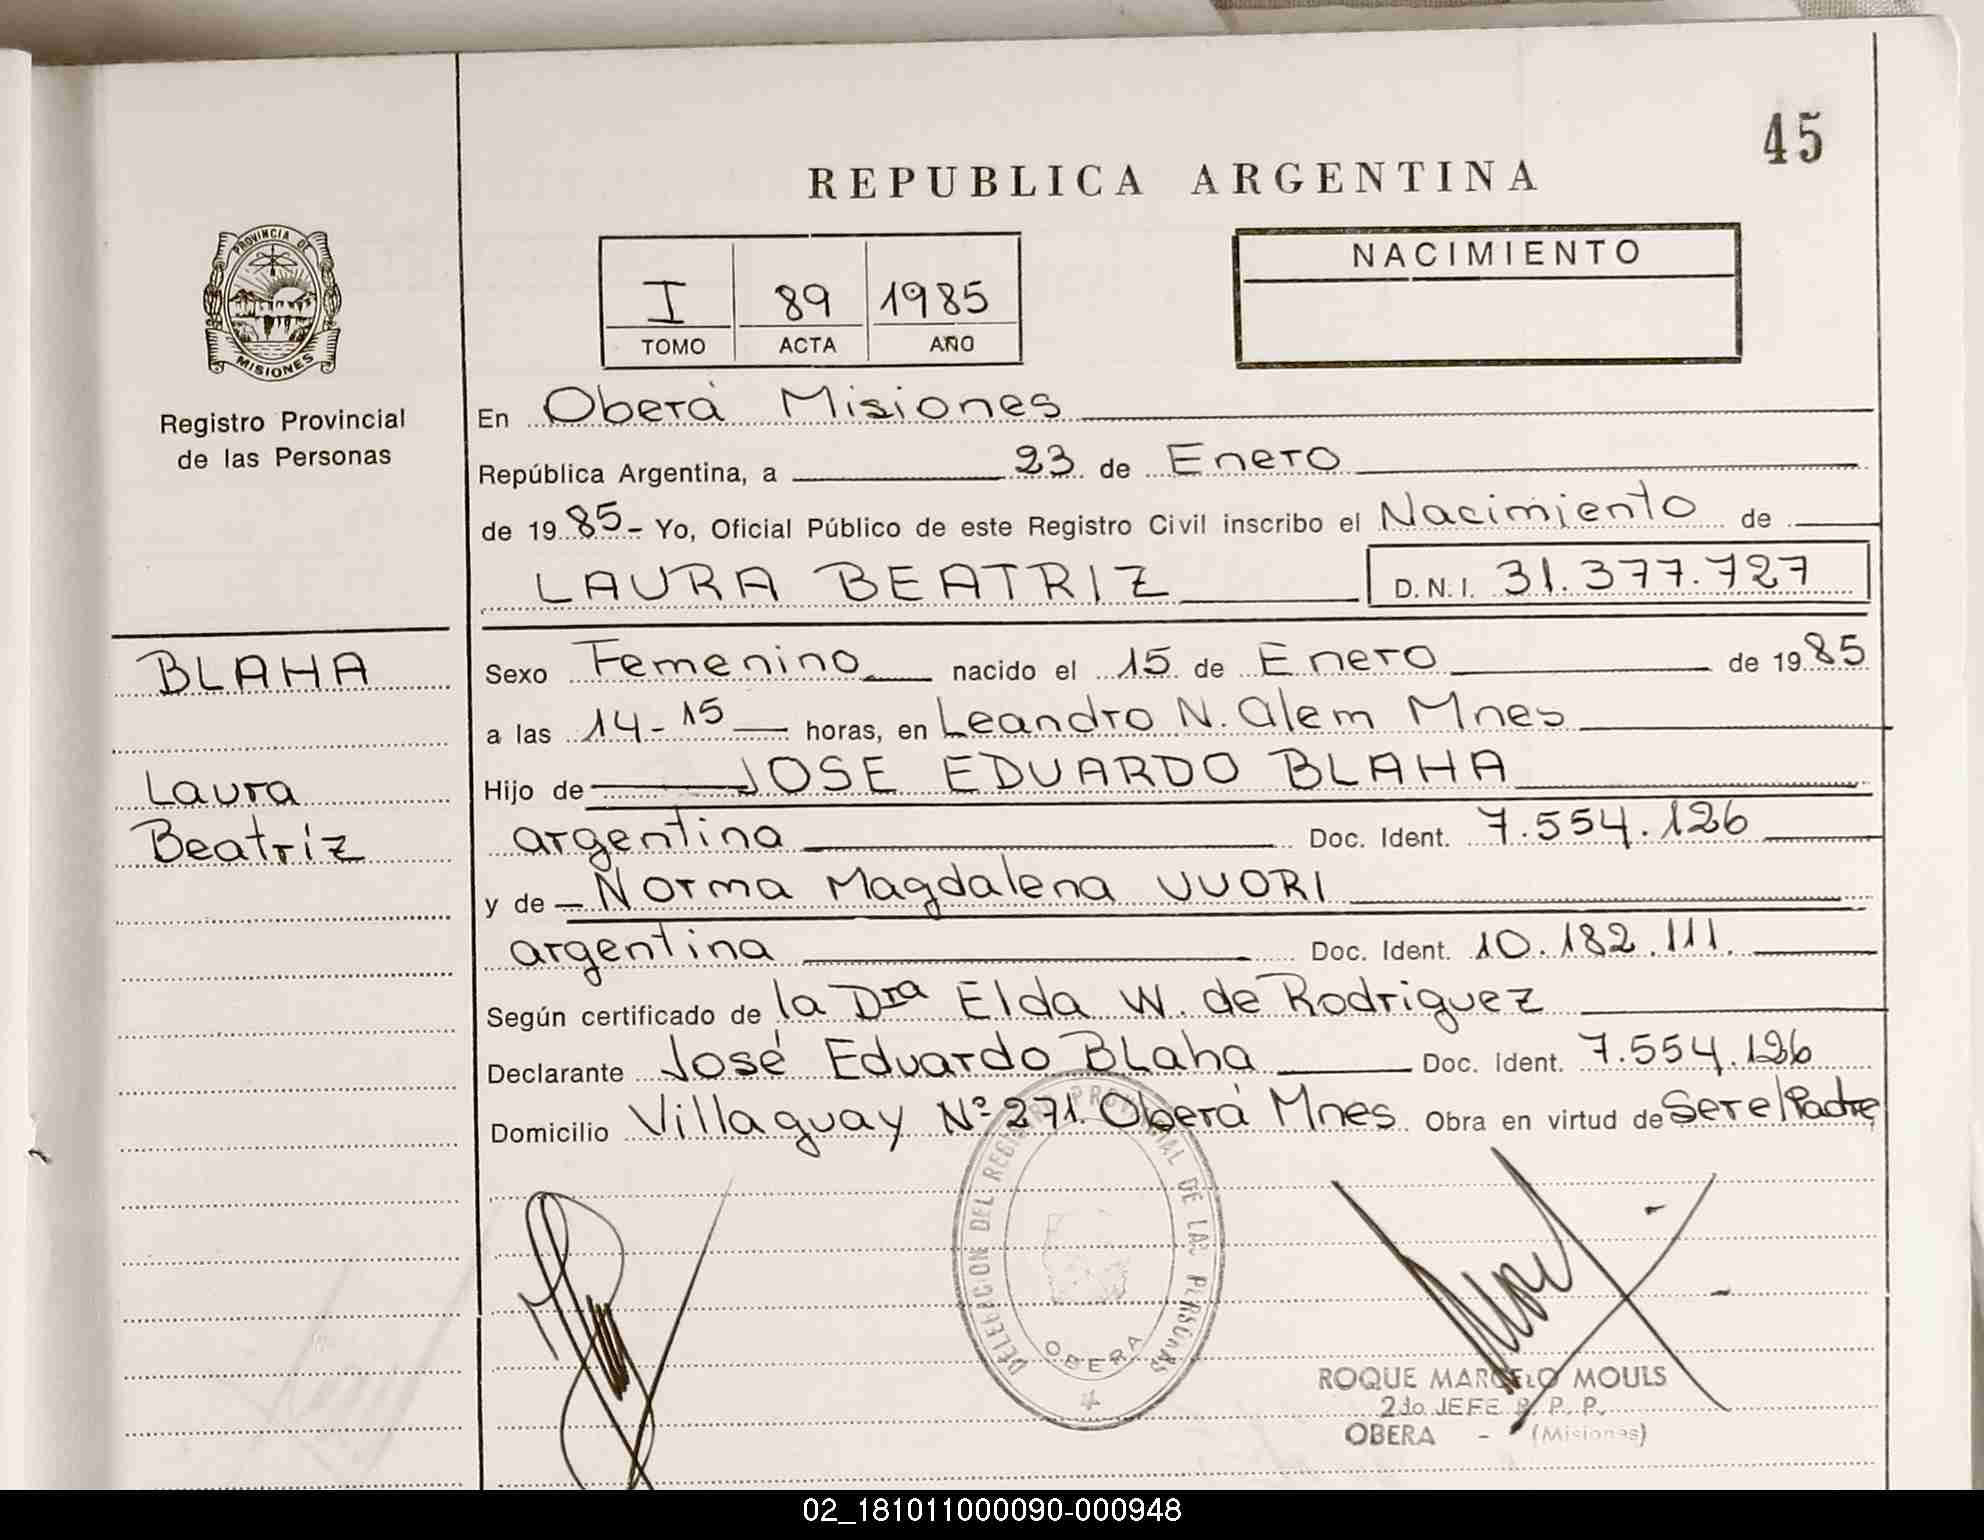 45
REPUBLICA ARGENTINA
PROVINCIA DE
MISIONES
Registro Provincial
de las Personas
I 89 1985
TOMO ACTA AÑO
NACIMIENTO
En Oberá Misiones
República Argentina, a 23 de Enero
de 1985- Yo, Oficial Público de este Registro Civil inscribo el Nacimiento de
LAURA BEATRIZ D.N.I. 31.377.727
BLAHA
Laura
Beatriz
Sexo Femenino nacido el 15 de Enero de 1985
a las 14-15 horas, en Leandro N. Alem Mnes
Hijo de JOSE EDUARDO BLAHA
argentina Doc. Ident. 7.554.126
y de Norma Magdalena VUORI
argentina Doc. Ident. 10.182.111.
Según certificado de la Dra Elda W. de Rodriguez
Declarante José Eduardo Blaha Doc. Ident. 7.554.126
Domicilio Villaguay Nº 271. Oberá Mnes Obra en virtud de Ser el Padre
DELEGACION DEL REGISTRO PROVINCIAL DE LAS PERSONAS
OBERA
ROQUE MARCELO MOULS
2do JEFE R. P. P.
OBERA - (Misiones)
02_181011000090-000948